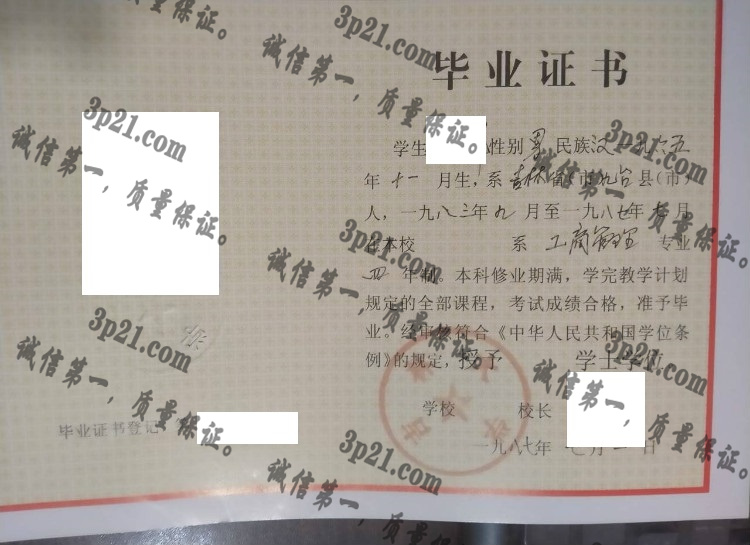 毕业证书
学生 性别 男 民族汉 一九六五
年 十一 月生，系 吉林 省(市)九台县(市)
人，一九八三年九 月至一九八七年七月
在本校 系 工商管理 专业
四 年制。本科修业期满，学完教学计划
规定的全部课程，考试成绩合格，准予毕
业。经审核符合《中华人民共和国学位条
例》的规定，授予 学士学位
学校 校长
一九八七年 七月一日
毕业证书登记
3p21.com
诚信第一，质量保证。
3p21.com
诚信第一，质量保证。
3p21.com
诚信第一，质量保证。
3p21.com
诚信第一，质量保证。
3p21.com
诚信第一，质量保证。
3p21.com
诚信第一，质量保证。
3p21.com
诚信第一，质量